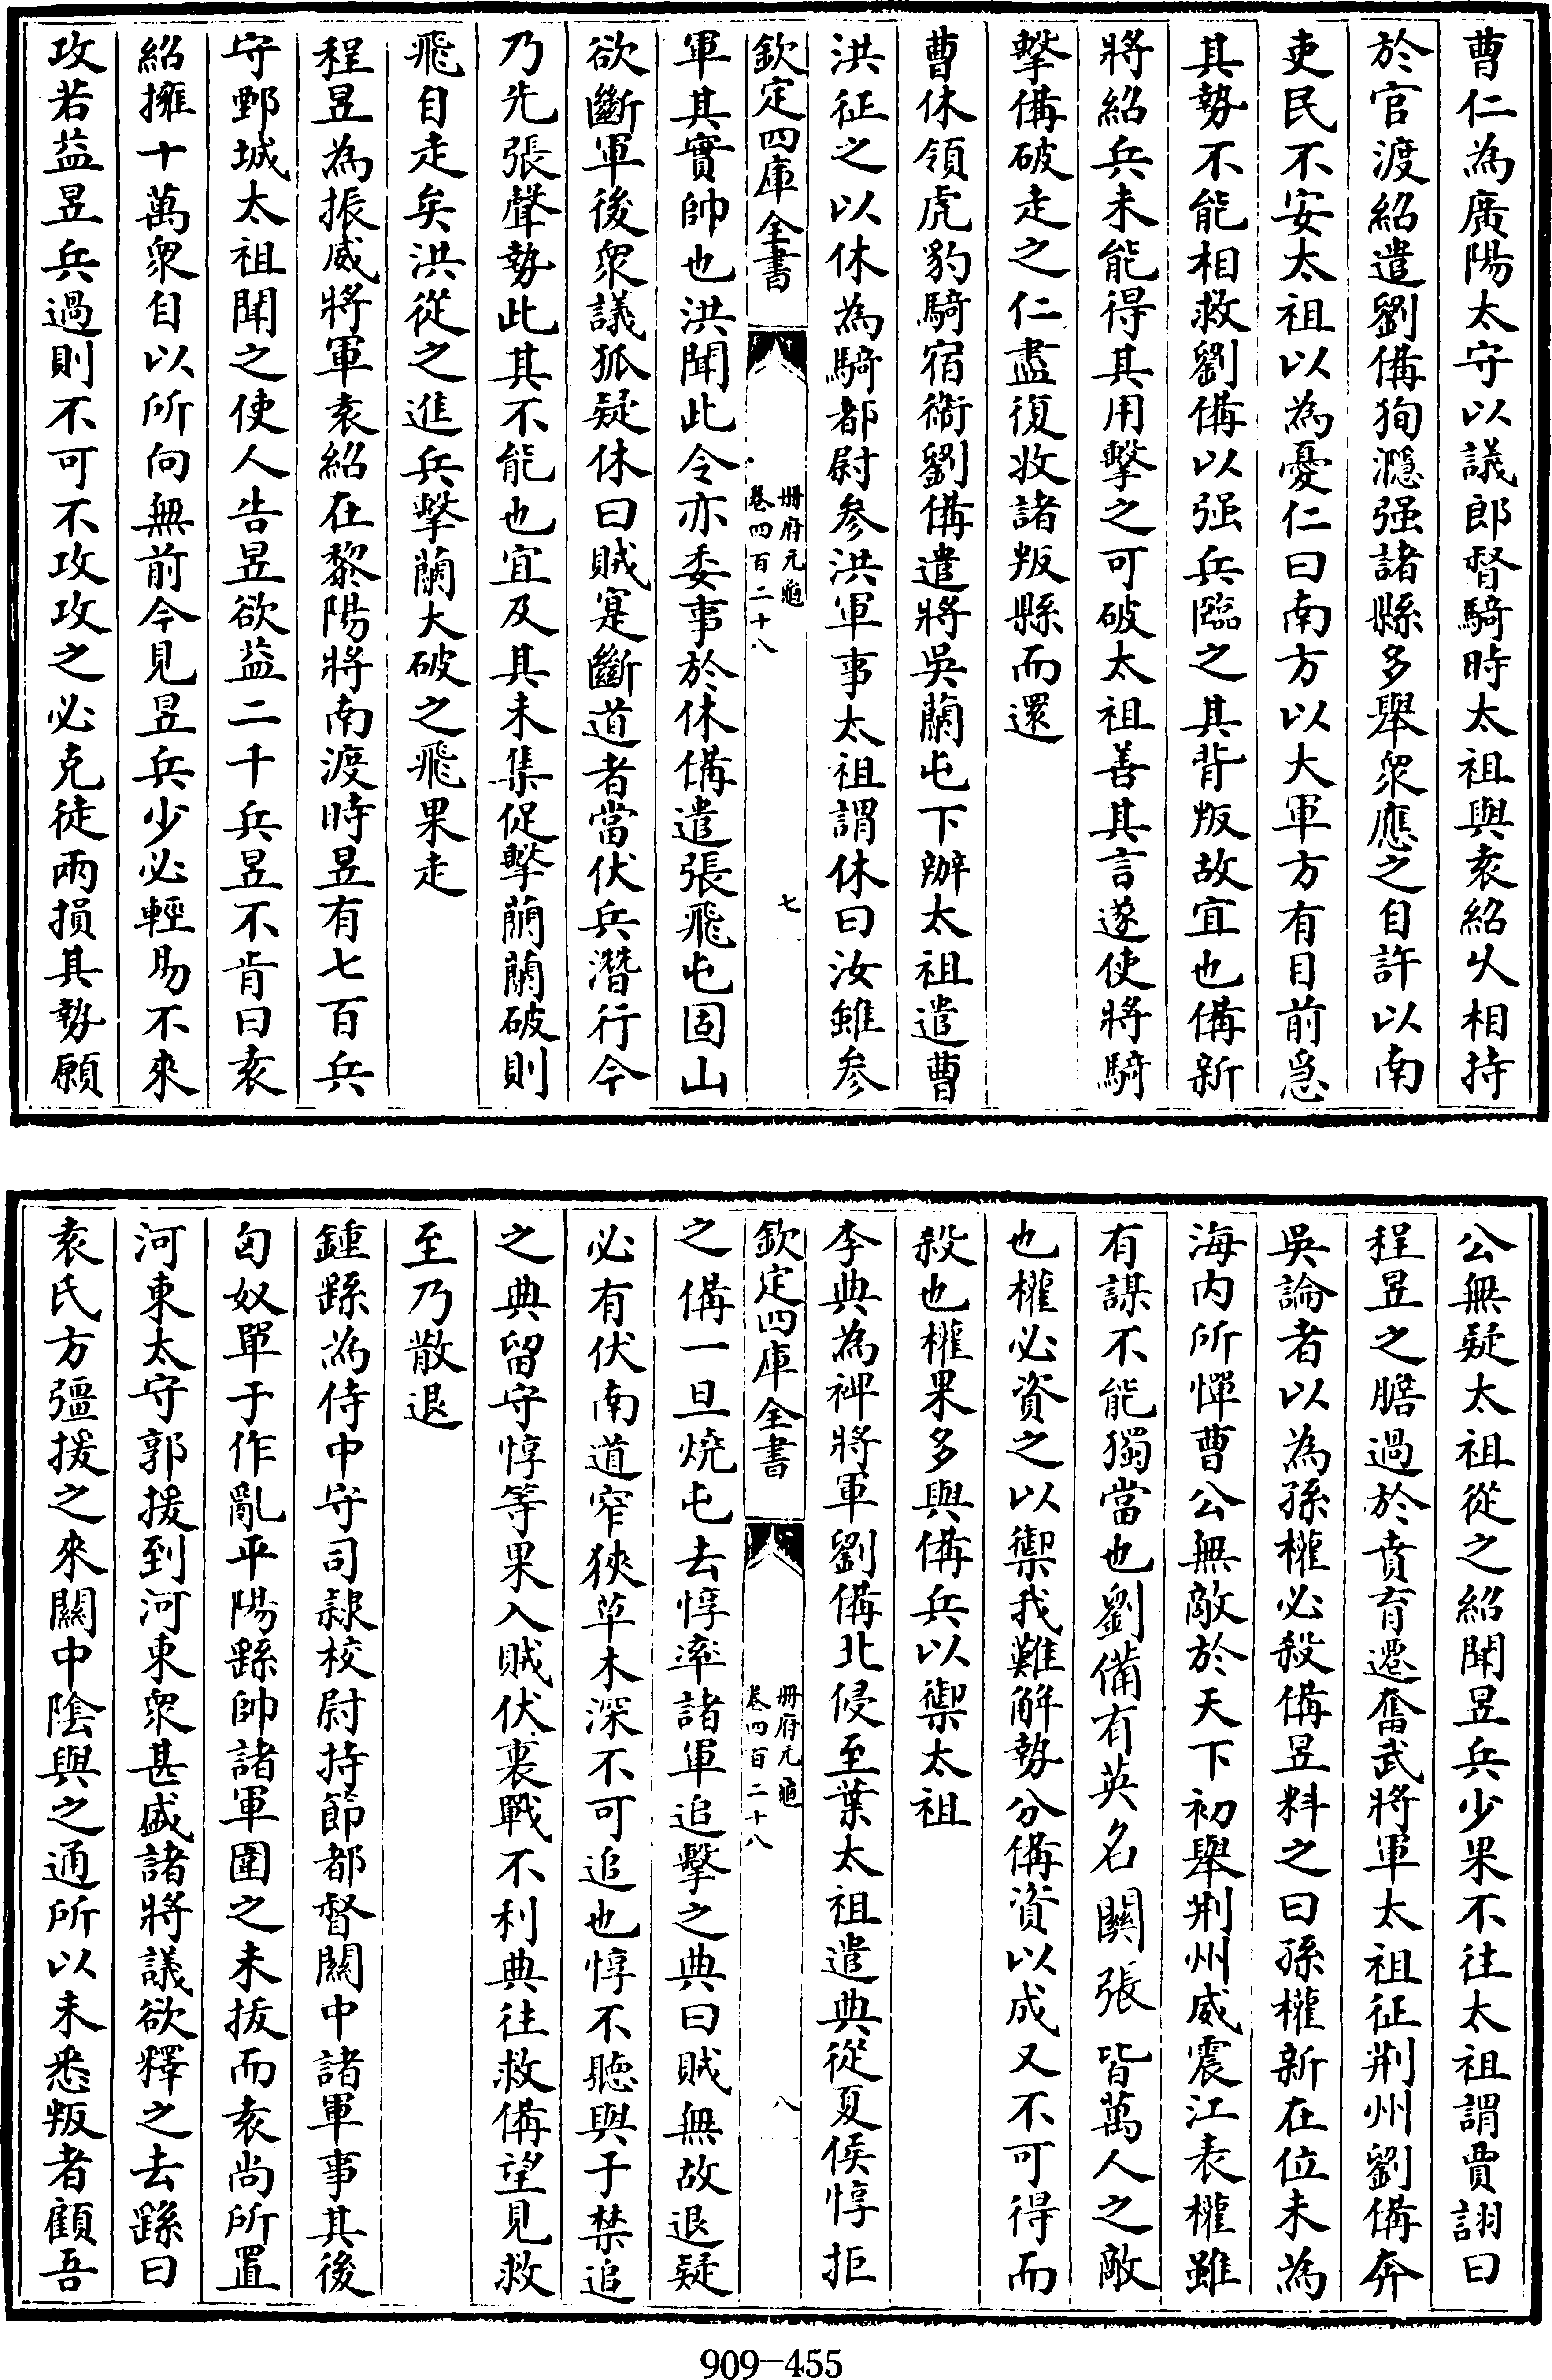 曹仁為廣陽太守以議郎督騎時太祖與袁紹乆相持
於官渡紹遣劉備狥㶏强諸縣多舉衆應之自許以南
吏民不安太祖以為憂仁曰南方以大軍方有目前急
其勢不能相救劉備以强兵臨之其背叛故宜也備新
將紹兵未能得其用擊之可破太祖善其言遂使將騎
擊備破走之仁盡復收諸叛縣而還
曹休領虎豹騎宿衛劉備遣將吳蘭屯下辦太祖遣曹
洪征之以休為騎都尉參洪軍事太祖謂休曰汝雖參
欽定四庫全書
冊府元龜
卷四百二十八
七
軍其實帥也洪聞此令亦委事於休備遣張飛屯固山
欲斷軍後衆議狐疑休曰賊寔斷道者當伏兵潛行今
乃先張聲勢此其不能也宜及其未集促擊蘭蘭破則
飛自走矣洪從之進兵擊蘭大破之飛果走
程昱為振威將軍袁紹在黎陽將南渡時昱有七百兵
守鄄城太祖聞之使人告昱欲益二千兵昱不肯曰袁
紹擁十萬衆自以所向無前今見昱兵少必輕易不來
攻若益昱兵過則不可不攻攻之必克徒兩損其勢願
公無疑太祖從之紹聞昱兵少果不往太祖謂賈詡曰
程昱之膽過於賁育遷奮武將軍太祖征荆州劉備奔
吳論者以為孫權必殺備昱料之曰孫權新在位未為
海内所憚曹公無敵於天下初舉荆州威震江表權雖
有謀不能獨當也劉備有英名關張皆萬人之敵
也權必資之以禦我難解勢分備資以成又不可得而
殺也權果多與備兵以禦太祖
李典為裨將軍劉備北侵至葉太祖遣典從夏侯惇拒
欽定四庫全書
冊府元龜
卷四百二十八
八
之備一旦燒屯去惇率諸軍追擊之典曰賊無故退疑
必有伏南道窄狹草木深不可追也惇不聽與于禁追
之典留守惇等果入賊伏裏戰不利典往救備望見救
至乃散退
鍾繇為侍中守司隸校尉持節都督關中諸軍事其後
匈奴單于作亂平陽繇帥諸軍圍之未拔而袁尚所置
河東太守郭援到河東衆甚盛諸將議欲釋之去繇曰
袁氏方彊援之來關中陰與之通所以未悉叛者顧吾
909-455